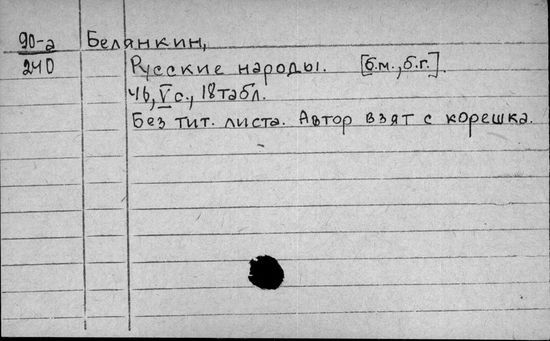 90-а Белянкин,
240 Русские народы. [б.м., б.г.].
46, V с., 18 табл.
Без тит. листа. Автор взят с корешка.